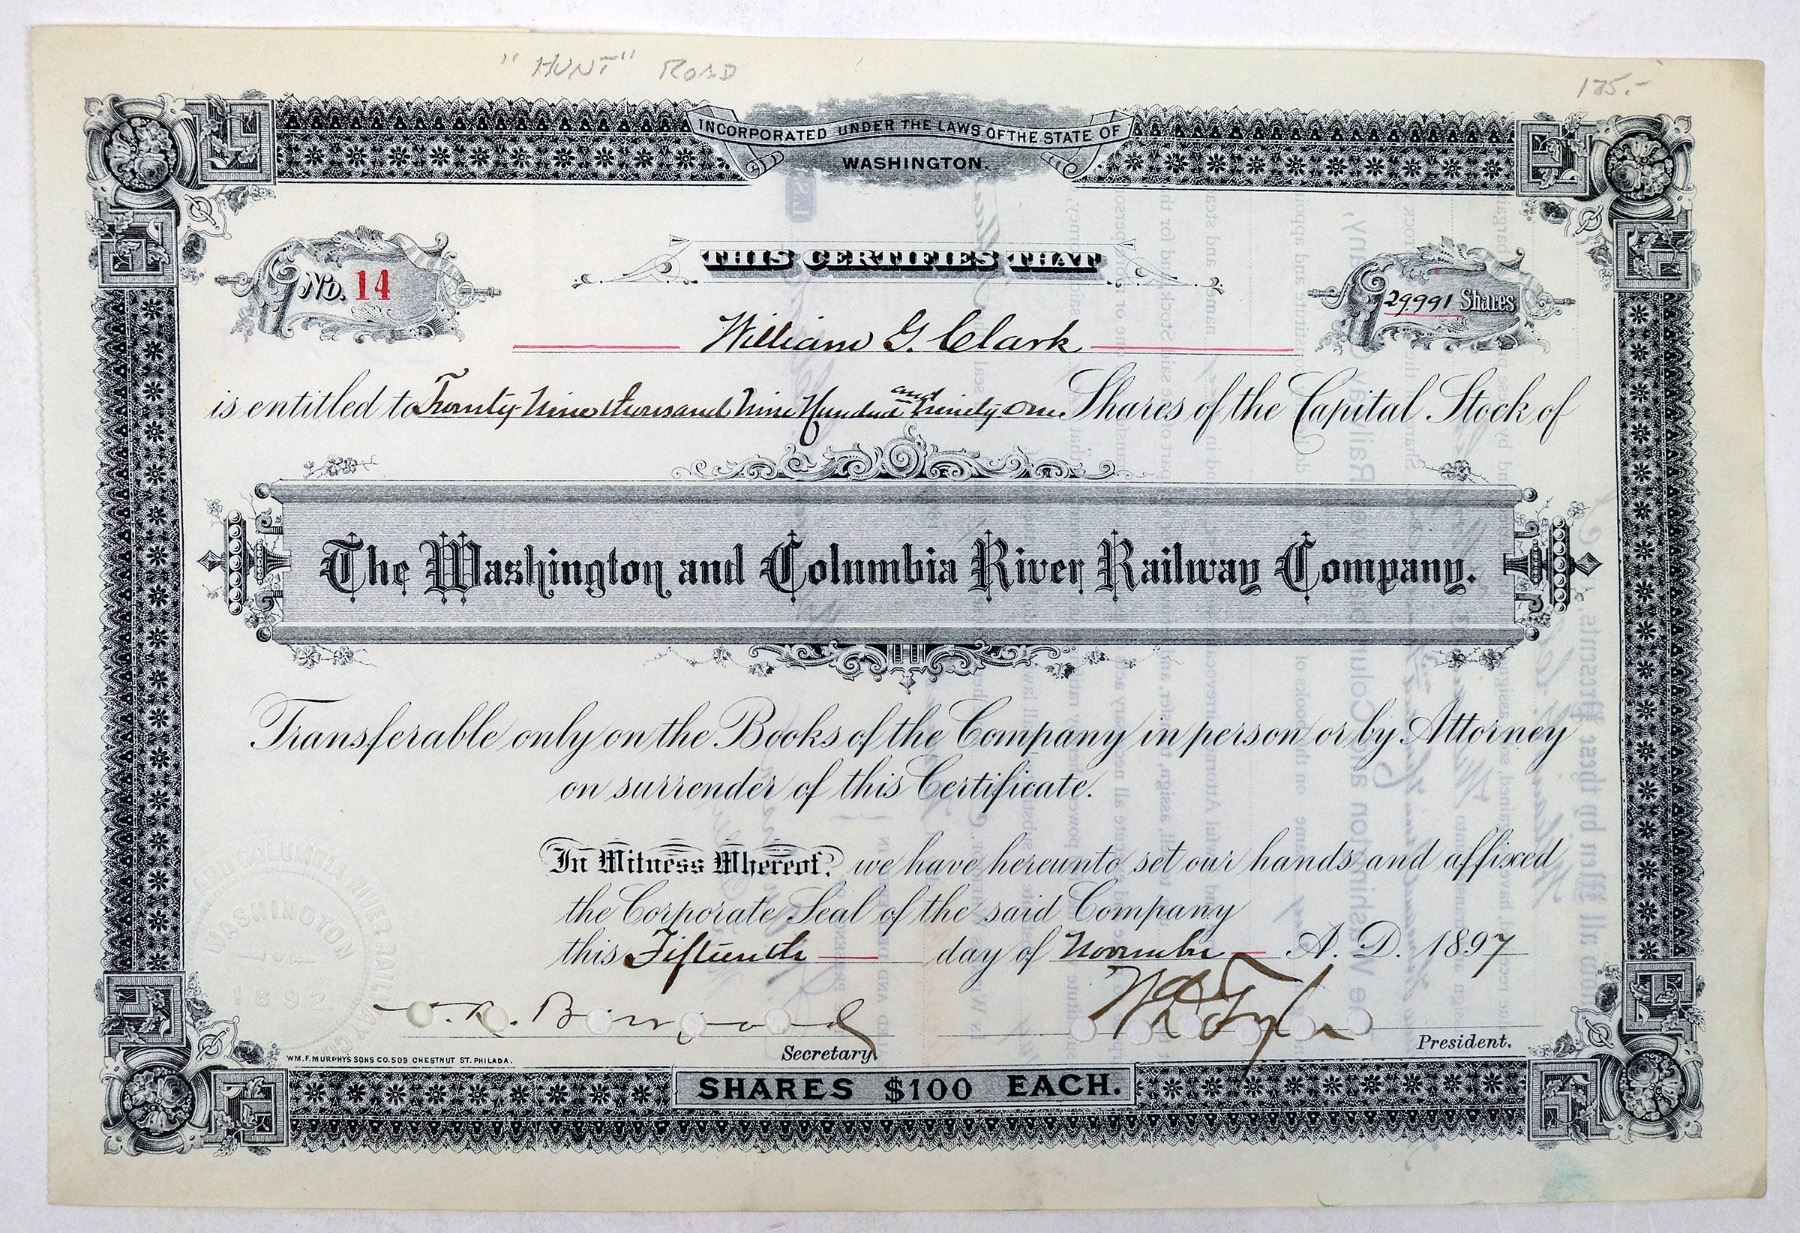 "HUNT" ROAD
175.-
INCORPORATED UNDER THE LAWS OF THE STATE OF
WASHINGTON.
No. 14
THIS CERTIFIES THAT
29991 Shares
William G. Clark
is entitled to Twenty Nine thousand Nine Hundred and Ninety one Shares of the Capital Stock of
The Washington and Columbia River Railway Company.
Transferable only on the Books of the Company in person or by Attorney
on surrender of this Certificate.
In Witness Whereof, we have hereunto set our hands and affixed
the Corporate Seal of the said Company
this Fifteenth day of November A. D. 1897
AND COLUMBIA RIVER RAILWAY CO.
WASHINGTON
1892
Secretary
President.
WM. F. MURPHY'S SONS CO. 509 CHESTNUT ST. PHILADA.
SHARES $100 EACH.